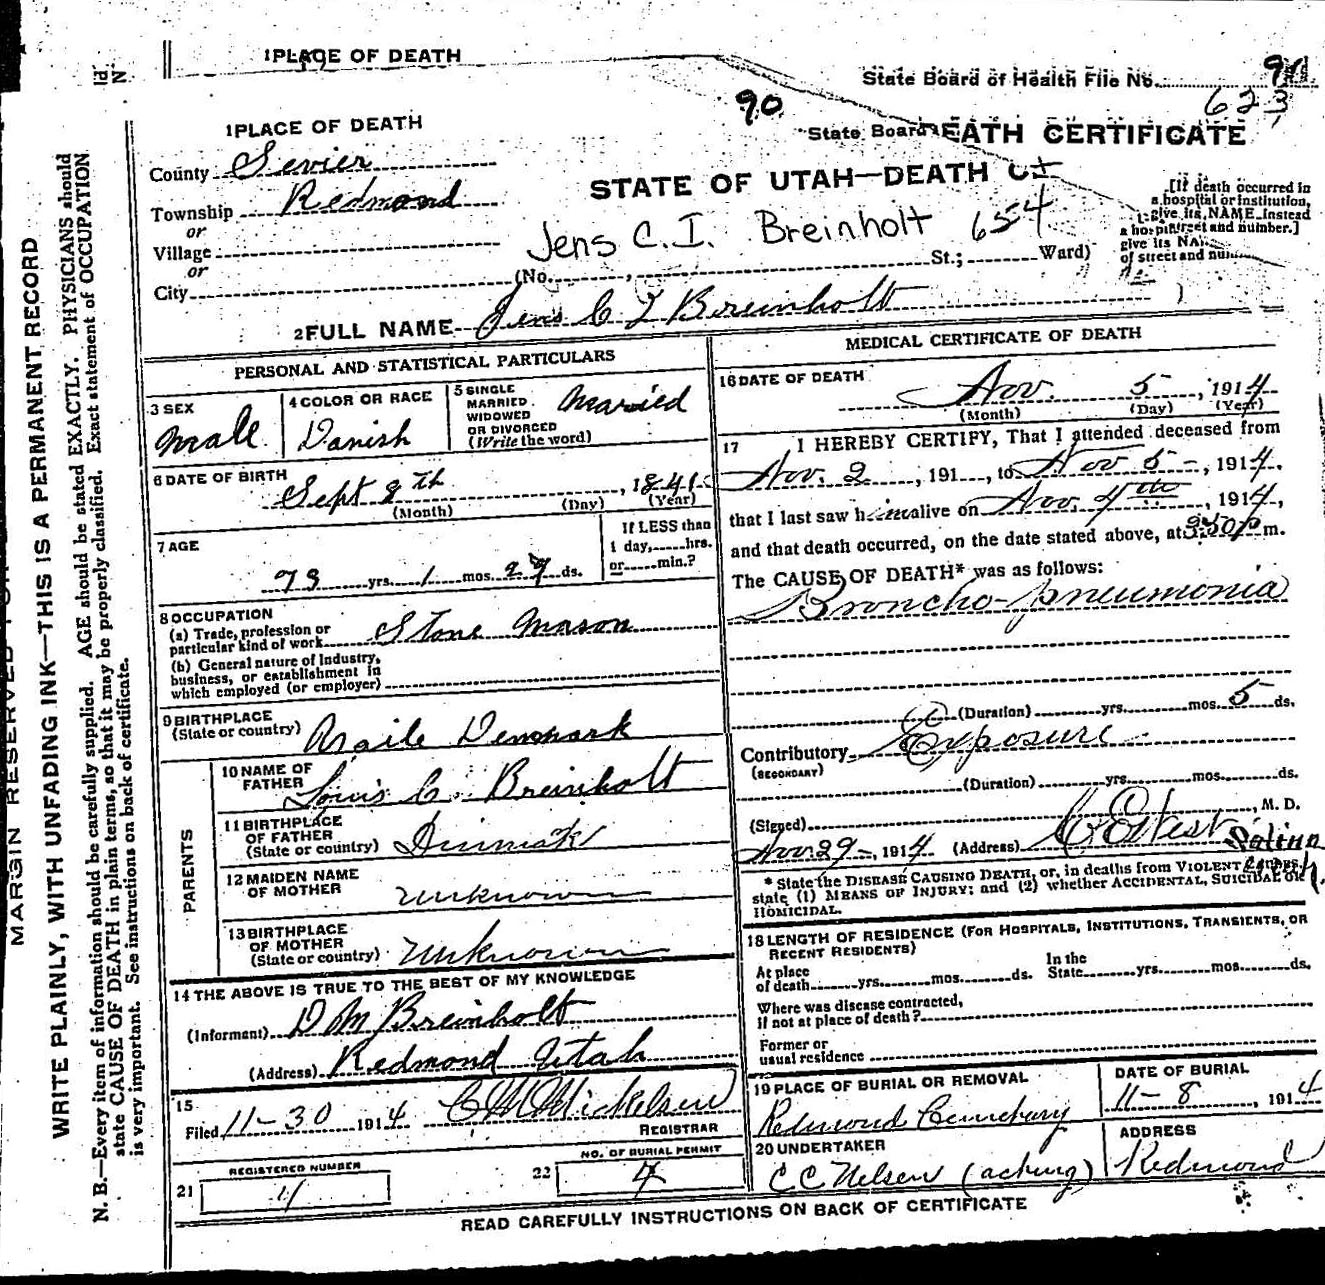 1 PLACE OF DEATH
State Board of Health File No.
90
623
1 PLACE OF DEATH
State Board
DEATH CERTIFICATE
County Sevier
STATE OF UTAH—DEATH
Township Redmond
or
Village
or
City
Jens C. I. Breinholt 654
(No. , St.; Ward)
[If death occurred in
a hospital or institution,
give its NAME instead
of street and number.]
2 FULL NAME Jens C I Breinholt
PERSONAL AND STATISTICAL PARTICULARS
3 SEX
Male
4 COLOR OR RACE
Danish
5 SINGLE
MARRIED
WIDOWED
OR DIVORCED
(Write the word)
Married
6 DATE OF BIRTH
Sept 8th , 1841
(Month) (Day) (Year)
7 AGE
73 yrs. 1 mos. 27 ds.
If LESS than
1 day, hrs.
or min.?
8 OCCUPATION
(a) Trade, profession or
particular kind of work Stone Mason
(b) General nature of Industry,
business, or establishment in
which employed (or employer)
9 BIRTHPLACE
(State or country) Denmark
PARENTS
10 NAME OF
FATHER Louis C. Breinholt
11 BIRTHPLACE
OF FATHER
(State or country)
12 MAIDEN NAME
OF MOTHER Unknown
13 BIRTHPLACE
OF MOTHER
(State or country) Unknown
14 THE ABOVE IS TRUE TO THE BEST OF MY KNOWLEDGE
(Informant) D M Breinholt
(Address) Redmond Utah
15
Filed 11-30 1914 C M Mickelsen
REGISTRAR
21 REGISTERED NUMBER
22 NO. OF BURIAL PERMIT
4
MEDICAL CERTIFICATE OF DEATH
16 DATE OF DEATH
Nov. 5 , 1914
(Month) (Day) (Year)
17 I HEREBY CERTIFY, That I attended deceased from
Nov. 2 , 191 , to Nov 5 , 1914,
that I last saw him alive on Nov. 4th , 1914,
and that death occurred, on the date stated above, at m.
The CAUSE OF DEATH* was as follows:
Broncho-pneumonia
(Duration) yrs. mos. 5 ds.
Contributory Exposure
(SECONDARY)
(Duration) yrs. mos. ds.
(Signed) C E West , M. D.
Nov. 29 , 1914 (Address) Salina
* State the DISEASE CAUSING DEATH, or, in deaths from VIOLENT CAUSES,
state (1) MEANS OF INJURY; and (2) whether ACCIDENTAL, SUICIDAL OR
HOMICIDAL.
18 LENGTH OF RESIDENCE (FOR HOSPITALS, INSTITUTIONS, TRANSIENTS, OR
RECENT RESIDENTS)
At place
of death yrs. mos. ds.
In the
State yrs. mos. ds.
Where was disease contracted,
if not at place of death?
Former or
usual residence
19 PLACE OF BURIAL OR REMOVAL
Redmond Cemetery
DATE OF BURIAL
11-8 , 1914
20 UNDERTAKER
C C Nelsen (acting)
ADDRESS
Redmond
READ CAREFULLY INSTRUCTIONS ON BACK OF CERTIFICATE
MARGIN RESERVED
WRITE PLAINLY, WITH UNFADING INK—THIS IS A PERMANENT RECORD
N. B.—Every item of information should be carefully supplied. AGE should be stated EXACTLY. PHYSICIANS should
state CAUSE OF DEATH in plain terms, so that it may be properly classified. Exact statement of OCCUPATION
is very important. See instructions on back of certificate.